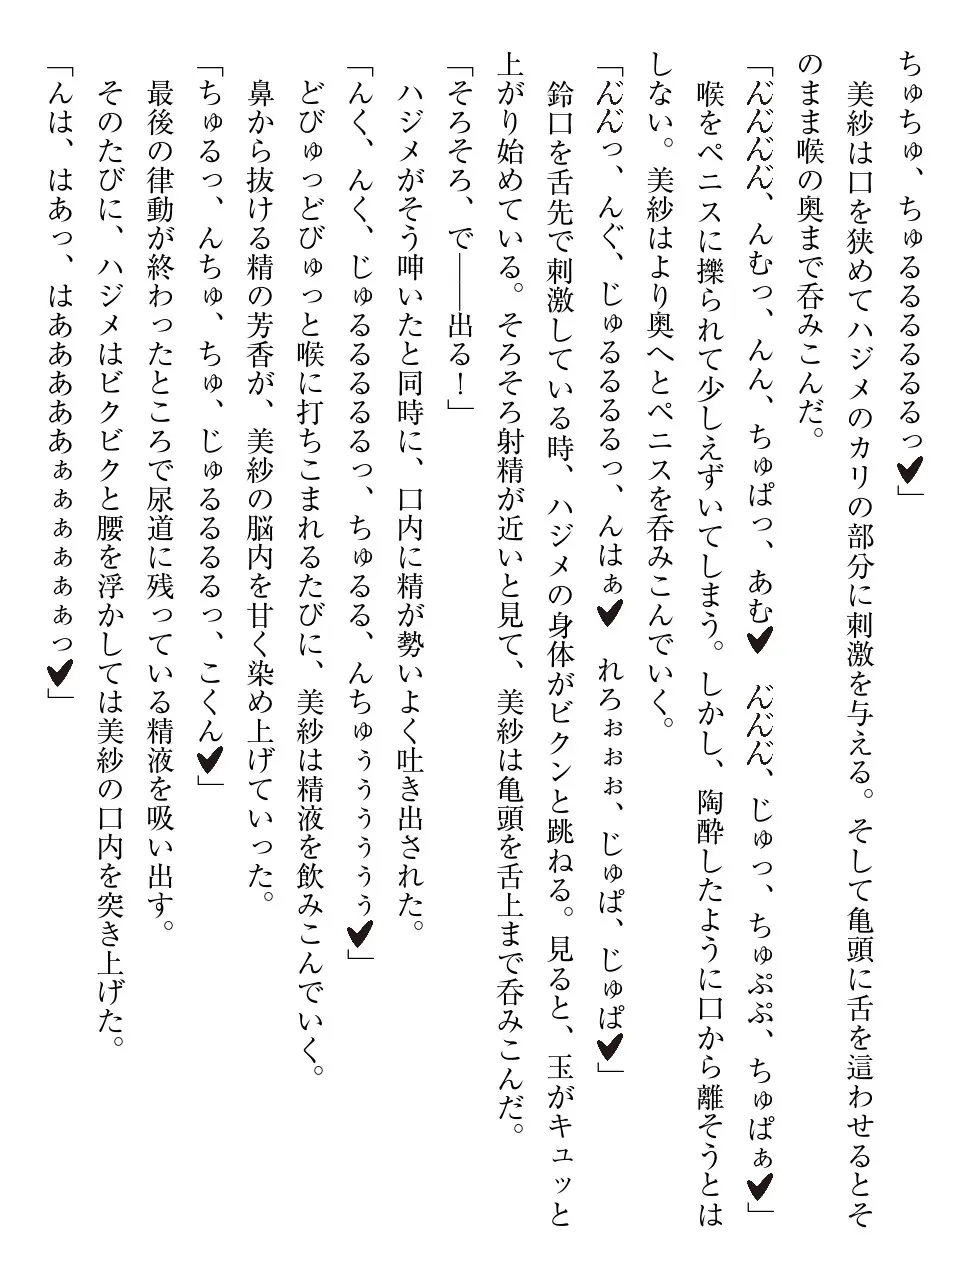 ちゅちゅ、ちゅるるるるるるっ♥」
　美紗は口を狭めてハジメのカリの部分に刺激を与える。そして亀頭に舌を這わせるとそ
のまま喉の奥まで呑みこんだ。
「ん゙ん゙ん゙ん゙、んむっ、んん、ちゅぱっ、あむ♥　ん゙ん゙ん゙、じゅっ、ちゅぷぷ、ちゅぱぁ♥」
　喉をペニスに擽られて少しえずいてしまう。しかし、陶酔したように口から離そうとは
しない。美紗はより奥へとペニスを呑みこんでいく。
「ん゙ん゙っ、んぐ、じゅるるるるっ、んはぁ♥　れろぉぉぉ、じゅぱ、じゅぱ♥」
　鈴口を舌先で刺激している時、ハジメの身体がビクンと跳ねる。見ると、玉がキュッと
上がり始めている。そろそろ射精が近いと見て、美紗は亀頭を舌上まで呑みこんだ。
「そろそろ、で――出る！」
　ハジメがそう呻いたと同時に、口内に精が勢いよく吐き出された。
「んく、んく、じゅるるるるっ、ちゅるる、んちゅぅぅぅぅぅ♥」
　どびゅっどびゅっと喉に打ちこまれるたびに、美紗は精液を飲みこんでいく。
　鼻から抜ける精の芳香が、美紗の脳内を甘く染め上げていった。
「ちゅるっ、んちゅ、ちゅ、じゅるるるるっ、こくん♥」
　最後の律動が終わったところで尿道に残っている精液を吸い出す。
　そのたびに、ハジメはビクビクと腰を浮かしては美紗の口内を突き上げた。
「んは、はあっ、はあああああぁぁぁぁぁっ♥」